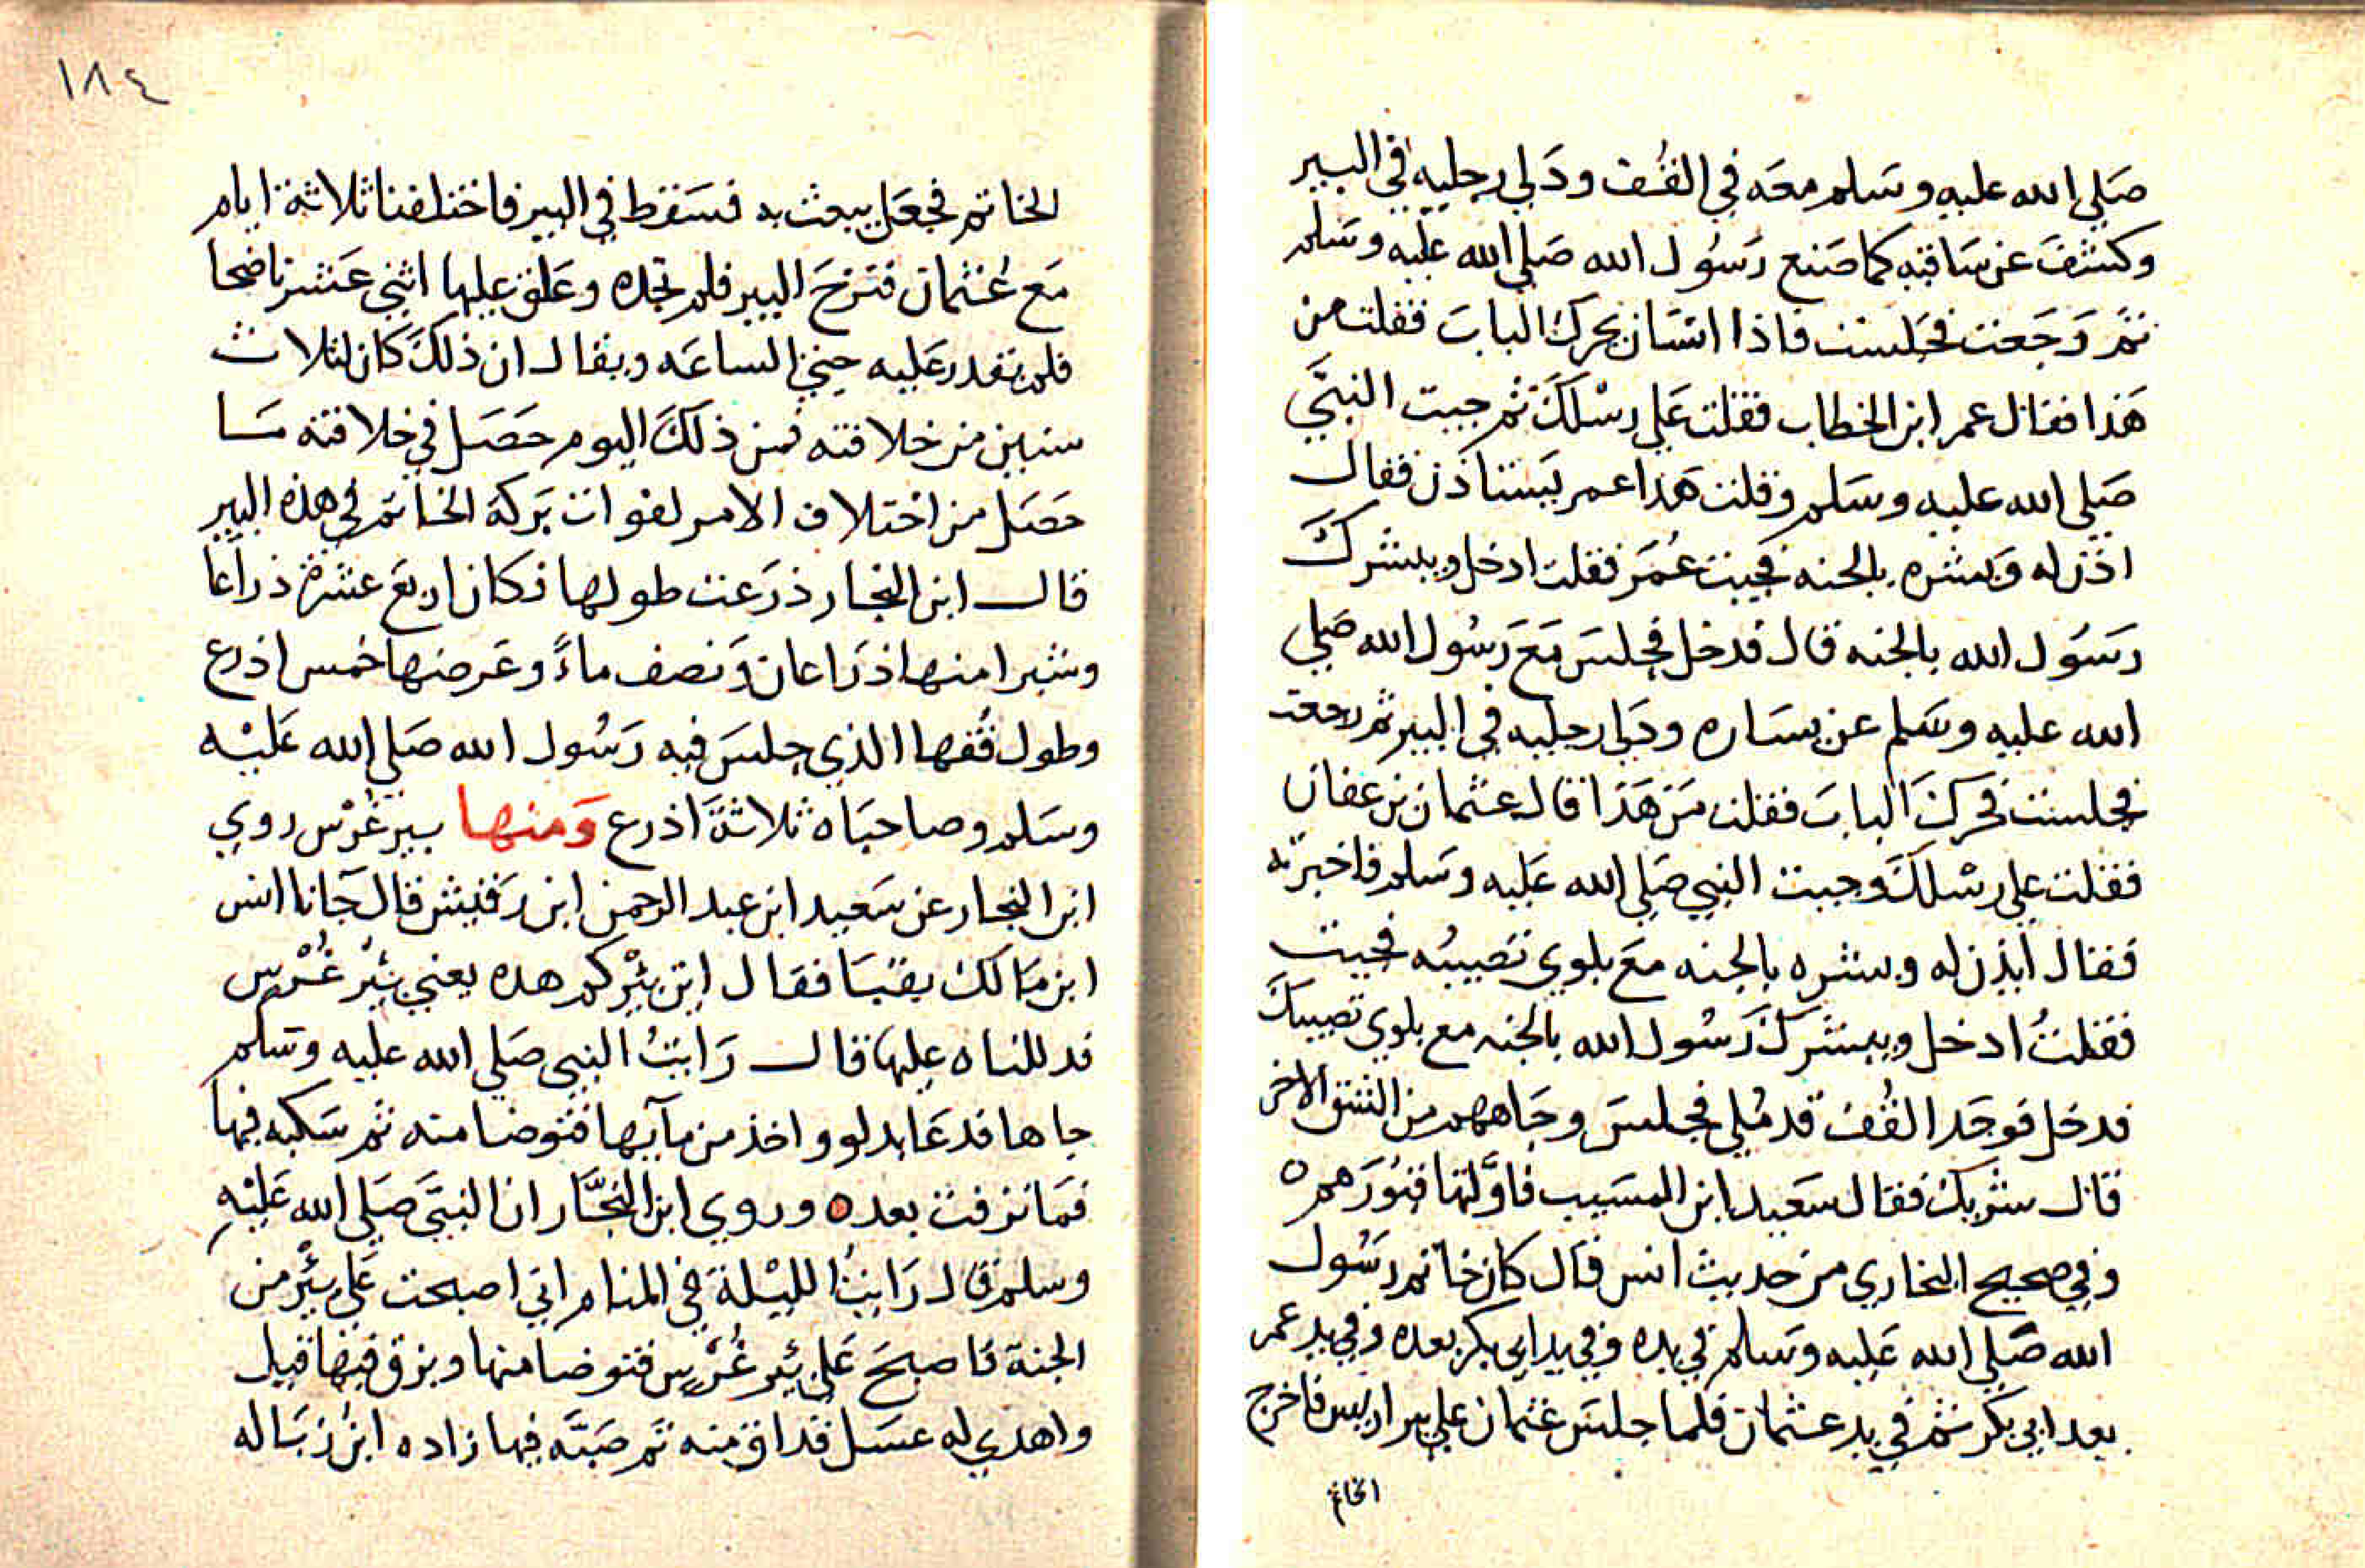 صَلي الله عليه وسَلم معَه في القُف ودَلي رجليه في البير
وكشفَ عن سَاقيه كما صَنع رَسُول الله صَلي الله عليه وسَلم
ثم رَجَعت فجَلست فاذا انسَان يحرك البابَ فقلت من
هَذا فقال عمر ابن الخطاب فقلت عَلي رسْلكَ ثم جيت النبيَّ
صَلي الله عليه وسَلم وقلت هَذا عمر يَستاذن فقال
اذن له وَبشره بالجنه فجيت عُمَر فقلت ادخل ويبشركَ
رَسَول الله بالجنه قال فدخل فجلسَ مَعَ رَسُول الله صَلي
الله عليه وسَلم عن يسَاره ودَلي رجليه في البير ثم رجعت
فجلست فحركَ البابَ فقلت مَن هَذا قال عثمان بن عفان
فقلت علي رسْلكَ وجيت النبي صَلي الله عَليه وسَلم فاخبرته
فقال ايذن له وبشره بالجنه معَ بلوي تصيبُه فجيت
فقلتُ ادخل ويبشركَ رَسُول الله بالجنه مع بلوي تصيبكَ
فدخل فوجَد القُفَ قد مُلي فجلسَ وجَاههم من الشق الاخر
قال شريك فقال سَعيد ابن المسَيب فاوَّلتها قبُورَهم ٥
وفي صحيح البخاري من حديث انس قال كان خاتم رَسُول
الله صَلي الله عَليه وسَلم في يده وفي يد ابي بكر بعده وفي يد عمر
بعد ابي بكر ثم في يد عثمان فلما جلسَ عثمان علي بير اريس فاخرج
الخاتم
١٨٤
الخاتم فجعَل يبعث به فسَقط في البير فاختلفنا ثلاثة ايام
مَع عُثمان فنزحَ البير فلم نجده وعَلق عليها اثني عَشر ناضحا
فلم نقدر عَليه حتي الساعَه ويقال ان ذلكَ كان لثلاث
سنين من خلافته فمن ذلكَ اليوم حَصَل في خلافته مَا
حَصَل من اختلاف الامر لفوات بَركة الخاتم في هذه البير
قال ابن النجار ذرَعت طولها فكان اربَع عشرة ذراعا
وشبرا منها ذرَاعان وَنصف ماءً وعَرضها خمس اذرع
وطول قُفها الذي جلسَ فيه رَسُول الله صَلي الله عَليْه
وسَلم وصاحبَاه ثلاثةَ اذرع وَمنها بير غُرْس روي
ابن النجار عن سَعيد ابن عبد الرحمن ابن رَقيش قال جَانا انس
ابن مَالك بقبَا فقال اين بئْركم هده يعني بئِرُ غُرْس
فدللناه عليها قال رَايتُ النبي صَلي الله عليه وسَلم
جاها فدعَا بدلو واخذ من مآيها فتوضا منه ثم سَكبه فيها
فمَا نزفت بعده وروي ابن النجَّار ان النبيَّ صَلي الله عَليْهِ
وسلم قال رَايتُ الليْلةَ في المنام اني اصبحت عَلي بئْر من
الجنة فاصبحَ عَلي بئِر غُرْس فتوضا منها وبزق فيها قيل
واهدي له عسَل فداق منه ثم صَبَّه فيها زاده ابن زبَاله